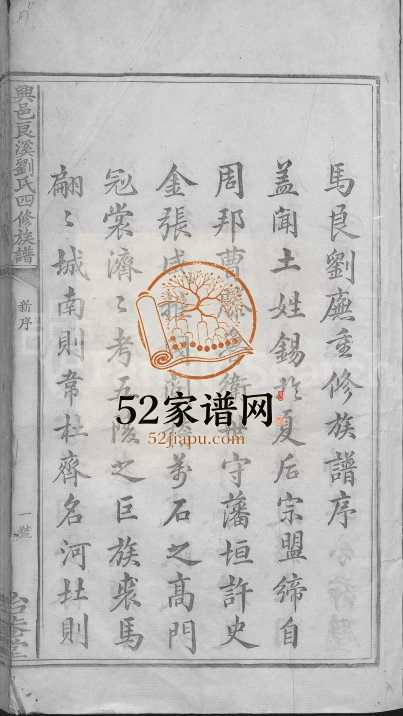 馬良劉廡重修族譜序
蓋聞土姓錫於夏后宗盟締自
周邦曹 衛 守藩垣許史
金張咸推 萬石之高門
冠裳濟〻考五陵之巨族裘馬
翩〻城南則韋杜齊名河 則
興邑良溪劉氏四修族譜
新序
一號
52家谱网
52jiapu.com